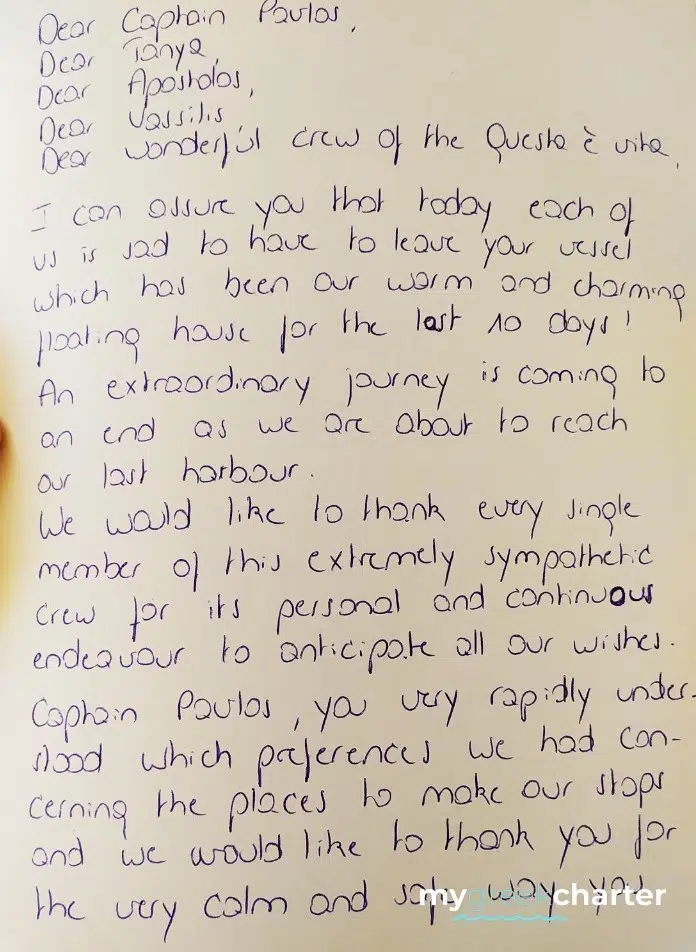 Dear Captain Pavlos,
Dear Tanya,
Dear Apostolos,
Dear Vassilis,
Dear wonderful crew of the Questa è vita,
I can assure you that today each of
us is sad to have to leave your vessel
which has been our warm and charming
floating house for the last 10 days!
An extraordinary journey is coming to
an end as we are about to reach
our last harbour.
We would like to thank every single
member of this extremely sympathetic
crew for its personal and continuous
endeavour to anticipate all our wishes.
Captain Pavlos, you very rapidly under-
stood which preferences we had con-
cerning the places to make our stops
and we would like to thank you for
the very calm and safe way you
mygreekcharter